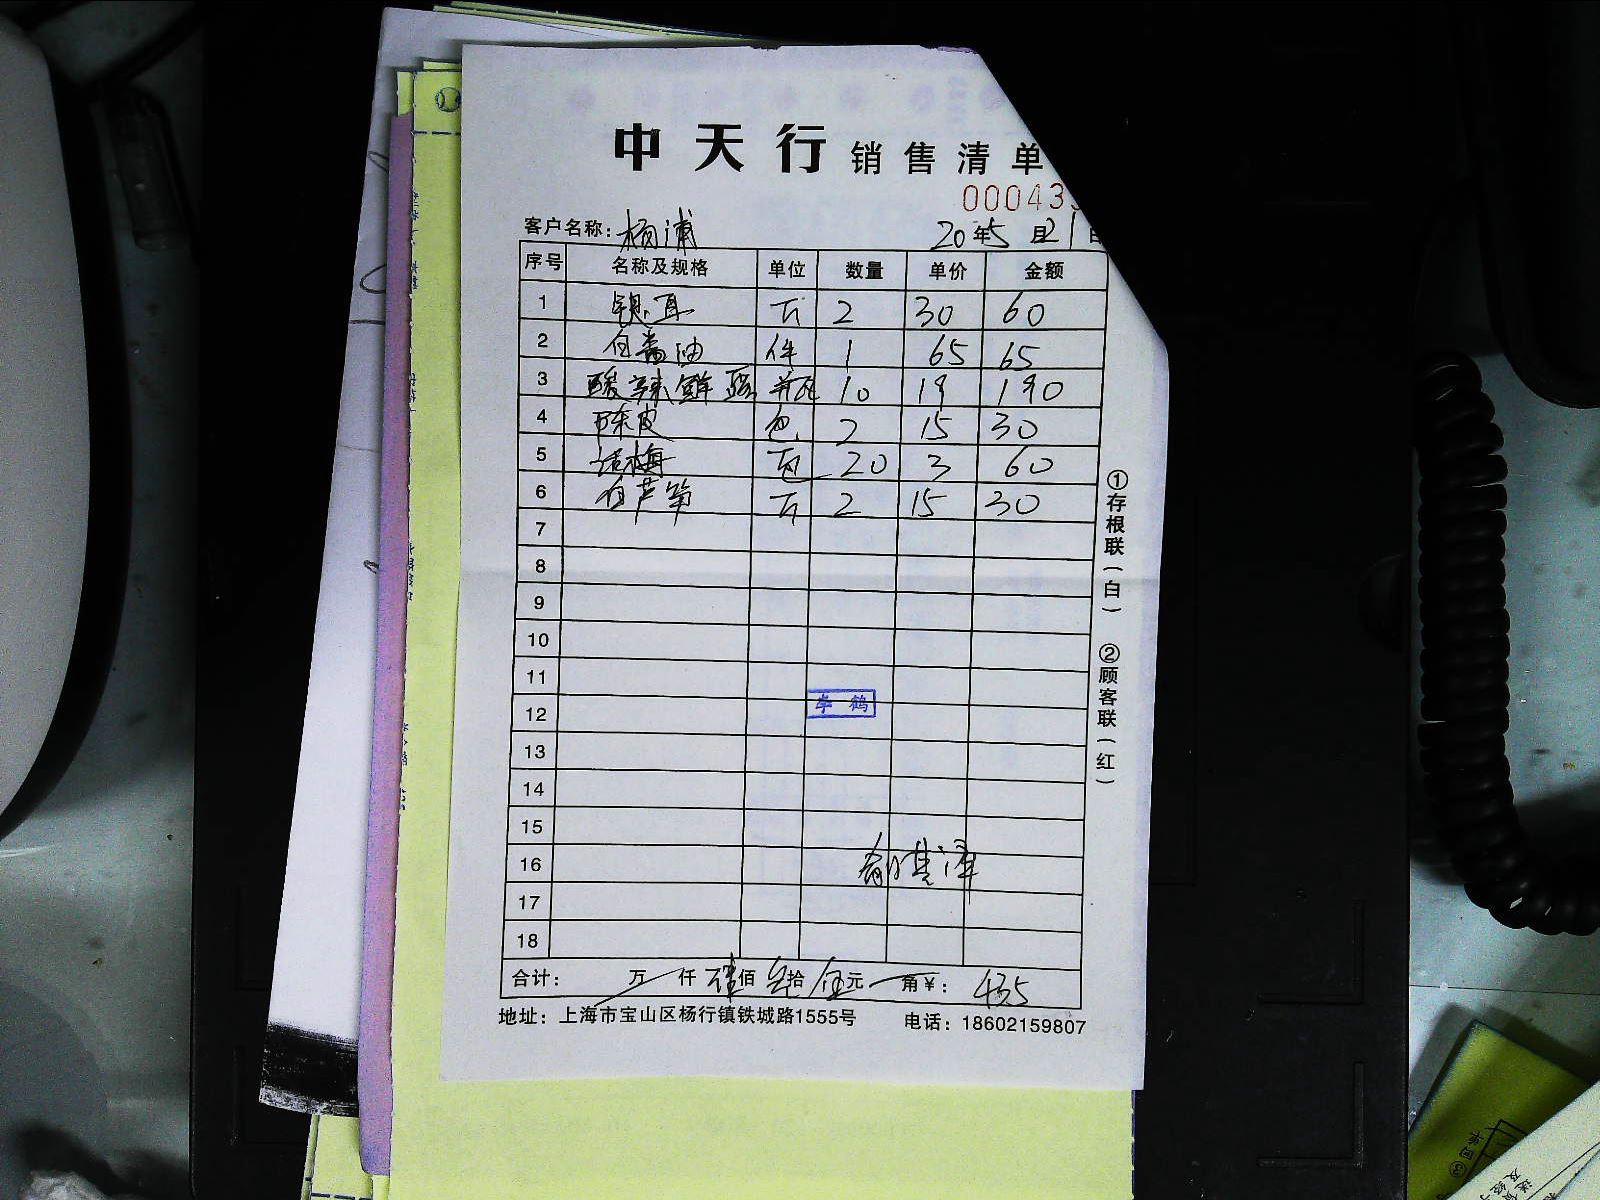 中天行 销售清单
00043
客户名称: 杨浦 20年5月21日
序号 名称及规格 单位 数量 单价 金额
1 银耳 斤 2 30 60
2 白酱油 件 1 65 65
3 酸辣鲜露 瓶 10 19 190
4 陈皮 包 2 15 30
5 话梅 包 20 3 60
6 白芦笋 斤 2 15 30
7
8
9
10
11
12
13
14
15
16
17
18
合计: 万 仟 肆佰 叁拾 伍元 角¥: 435
地址: 上海市宝山区杨行镇铁城路1555号 电话: 18602159807
①存根联(白) ②顾客联(红)